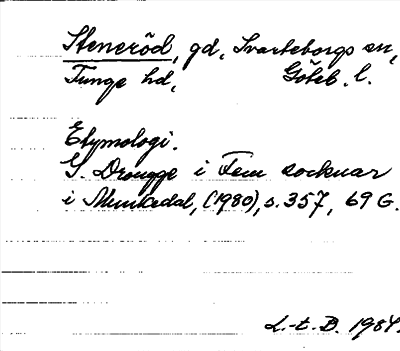 Steneröd, gd, Svarteborgs sn,
Tunge hd, Göteb. l.
Etymologi.
G. Drougge i Fem socknar
i Munkedal, (1980), s. 357, 69 G.
L.-t. B. 1984.